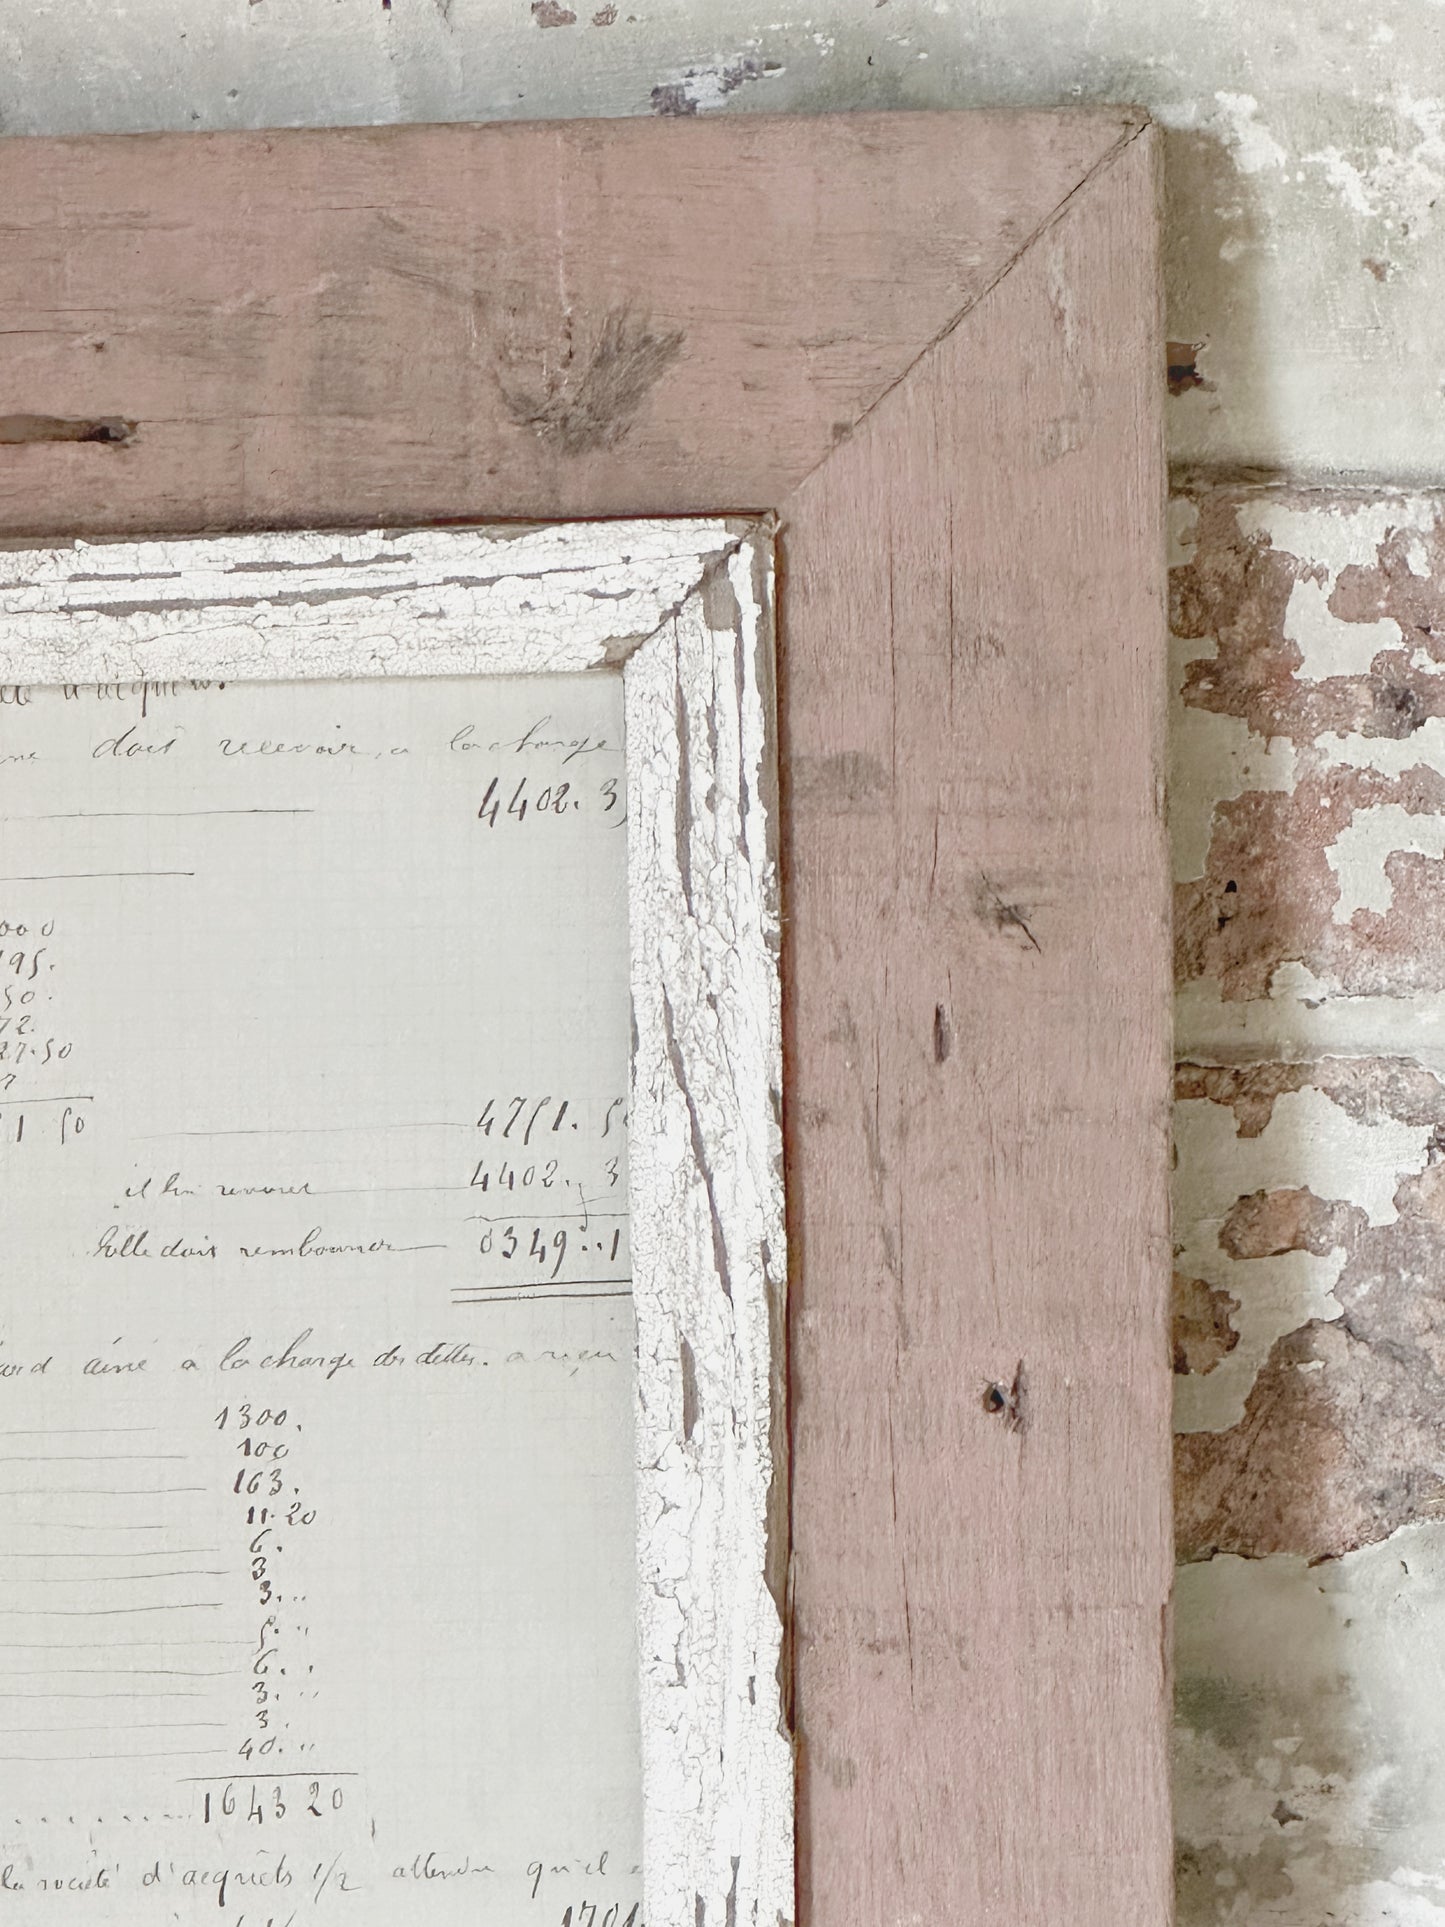 d'acquêts.
doit recevoir, a la charge
4402. 3
000
195.
50.
72.
27.50
1 50
4751. 5
il lui revenait 4402. 3
Elle doit rembourser 0349..1
ainé a la charge des dettes. a reçu
1300.
100
163.
11.20
6.
3
3. "
5. "
6. "
3. "
3.
40. "
1643 20
la societé d'acquêts 1/2 attendu qu'il
1701.